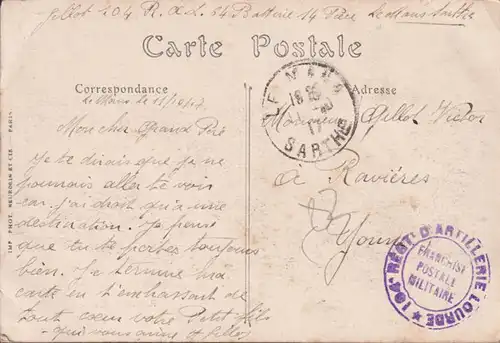 Gillot 104 R.A.L 54 Batterie 14 Pièce Le Mans Sarthe
Carte Postale
Correspondance
Adresse
Le Mans le 11/10/17
Mon cher Grand Père
Je te dirais que je ne
pouvais aller te voir
car j'ai droit qu'a une
destination. Je pense
que tu te portes toujours
bien. Je termine ma
carte en t'embrassant de
tout coeur votre Petit fils
qui vous aime Gillot
Monsieur Gillot Victor
à Ravières
Yonne
LE MANS
17
SARTHE
104e RÉGT D'ARTILLERIE LOURDE
FRANCHISE
POSTALE
MILITAIRE
IMP. PHOT. NEURDEIN ET CIE PARIS